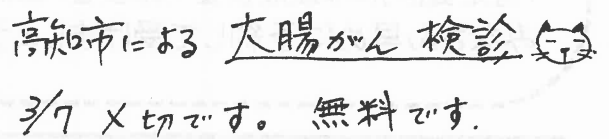 高知市による 大腸がん 検診
3/7 〆切です。 無料です.